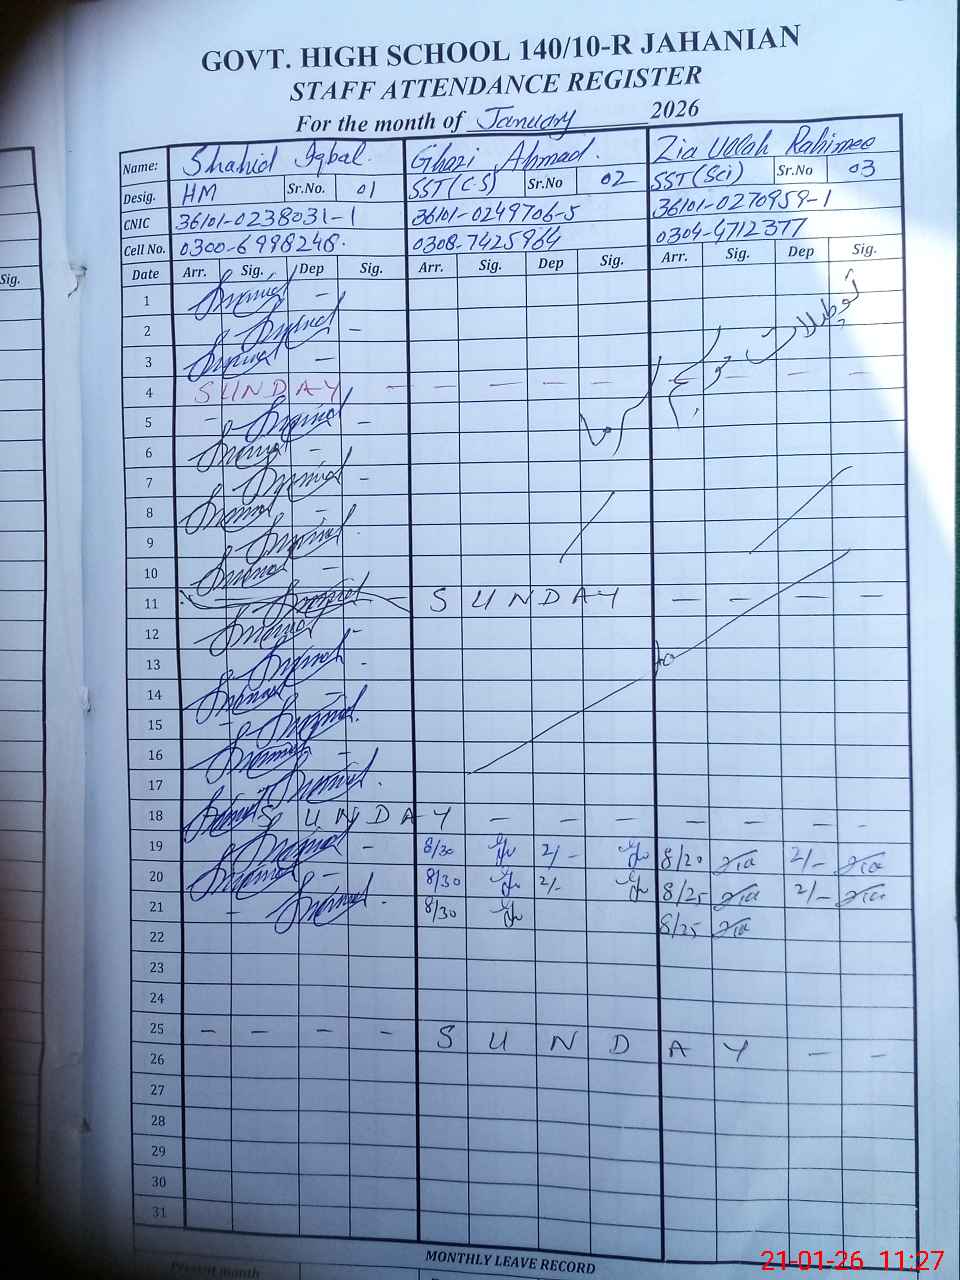 GOVT. HIGH SCHOOL 140/10-R JAHANIAN
STAFF ATTENDANCE REGISTER
For the month of January 2026
Name: Shahid Iqbal. Ghazi Ahmad. Zia Ullah Rahimee
Desig. HM Sr.No. 01 SST(C.S) Sr.No 02 SST(Sci) Sr.No 03
CNIC 36101-0238031-1 36101-0249706-5 36101-0270959-1
Cell No. 0300-6998248. 0308-7425964 0304-4712377
Sig.
Date Arr. Sig. Dep Sig. Arr. Sig. Dep Sig. Arr. Sig. Dep Sig.
1
2
3
4 SUNDAY - - - - - - - -
5
6
7
8
9
10
11 SUNDAY - - - -
12
13
14
15
16
17
18 SUNDAY - - - - - - -
19 8/30 2/- 8/20 Zia 2/- Zia
20 8/30 2/- 8/25 Zia 2/- Zia
21 8/30 8/25 Zia
22
23
24
25 - - - - SUNDAY - -
26
27
28
29
30
31
MONTHLY LEAVE RECORD
Present month
21-01-26 11:27